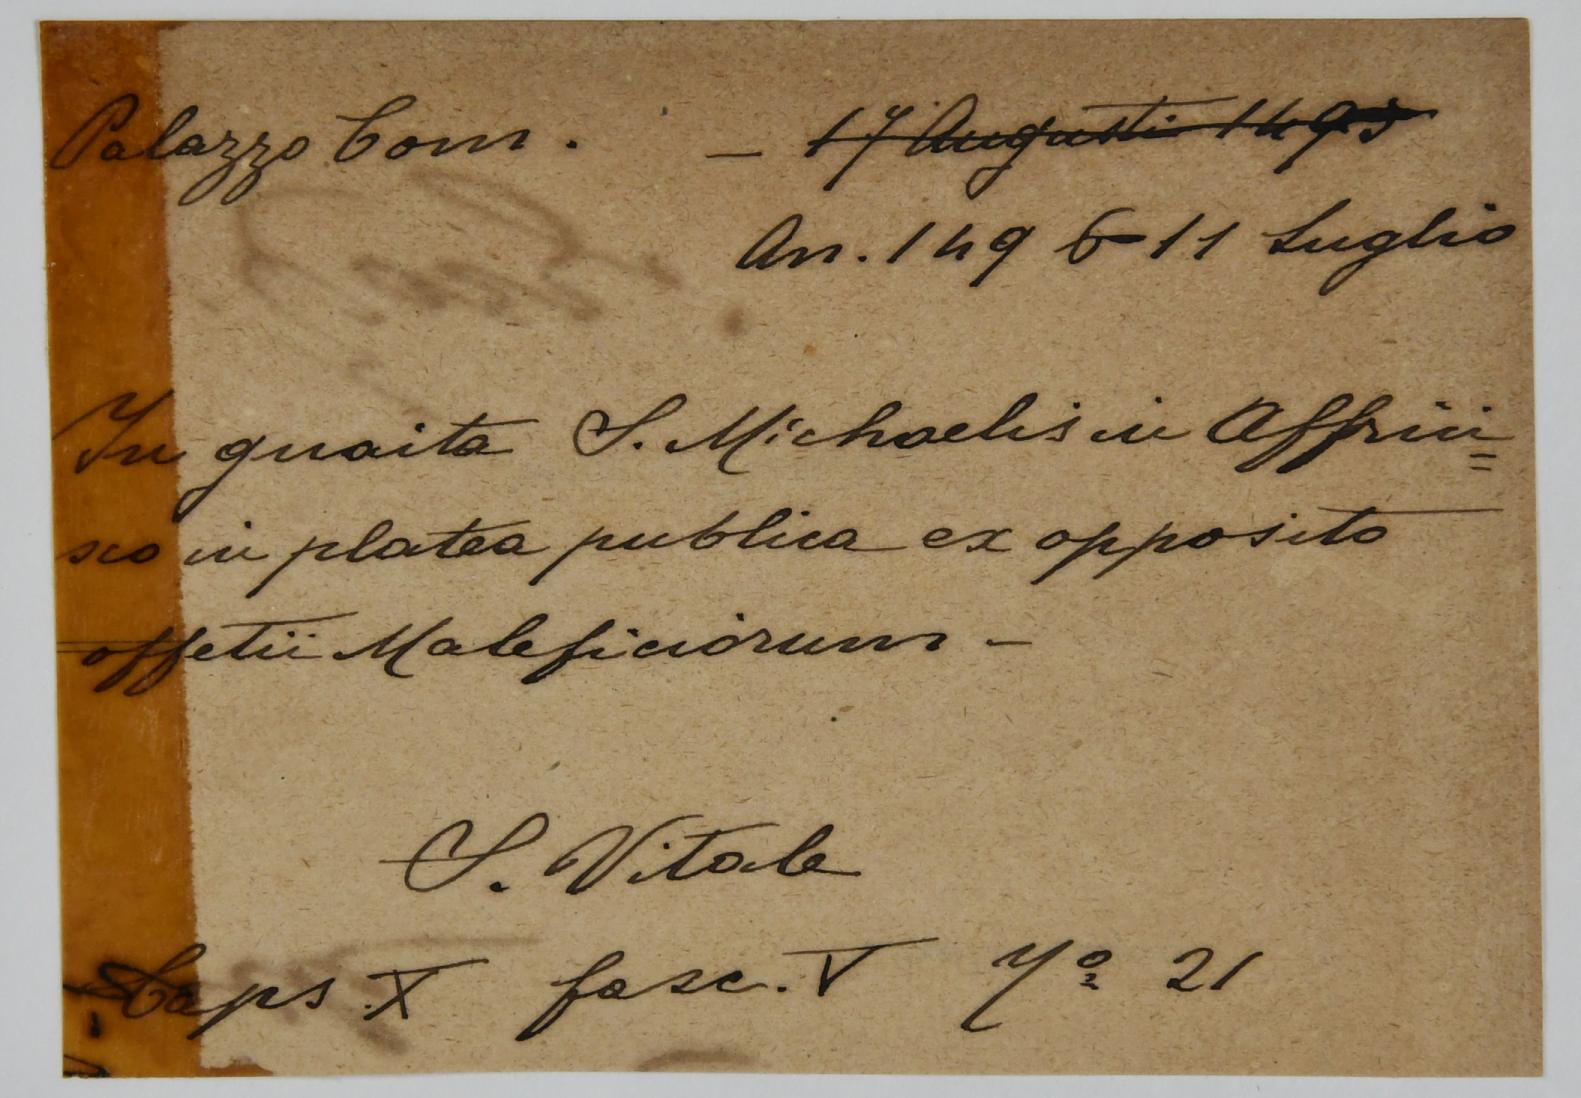 Palazzo Com. - 17 Augusti 1495
An. 1496 - 11 Luglio
In guaita S. Michaelis in Affrici=
sco in platea publica ex opposito
offetii Maleficiorum -
S. Vitale
Caps. X fasc. V Nº 21